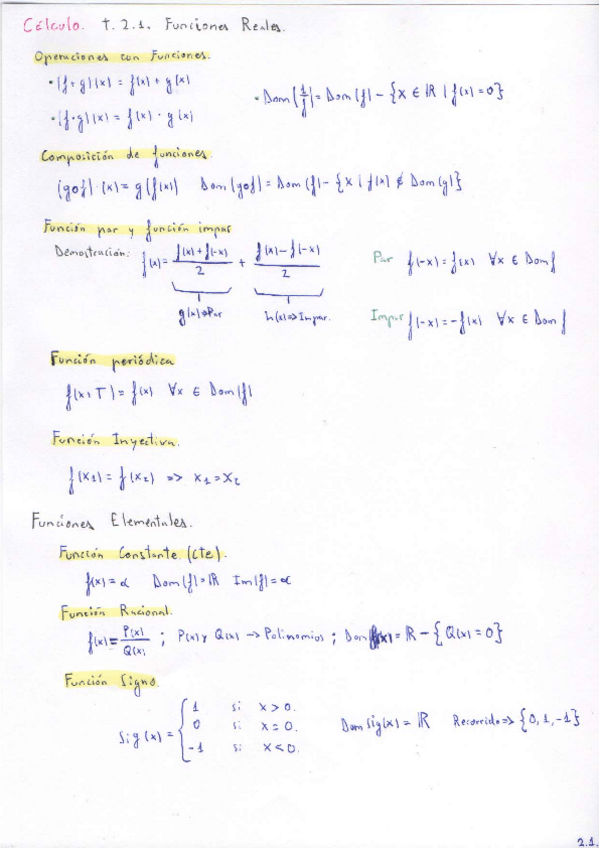 Cálculo. T.2.1. Funciones Reales.
Operaciones con Funciones.
• (f+g)(x) = f(x) + g(x)
• Dom(1/f) = Dom(f) - {x ∈ ℝ | f(x)=0}
• (f·g)(x) = f(x) · g(x)
Composición de funciones.
(g∘f)·(x) = g(f(x)) Dom(g∘f) = Dom(f) - {x | f(x) ∉ Dom(g)}
Función par y función impar
Demostración: f(x) = (f(x)+f(-x))/2 + (f(x)-f(-x))/2
Par f(-x) = f(x) ∀x ∈ Dom f
g(x)⇒Par h(x)⇒Impar.
Impar f(-x) = -f(x) ∀x ∈ Dom f
Función periódica
f(x+T) = f(x) ∀x ∈ Dom(f)
Función Inyectiva.
f(x₁) = f(x₂) => x₁ = x₂
Funciones Elementales.
Función Constante (cte).
f(x) = α Dom(f) = ℝ Im(f) = α
Función Racional.
f(x) = P(x)/Q(x) ; P(x) y Q(x) → Polinomios ; Dom f(x) = ℝ - {Q(x)=0}
Función Signo.
1 si x > 0.
Sig(x) = { 0 si x = 0. Dom Sig(x) = ℝ Recorrido => {0, 1, -1}
-1 si x < 0.
2.1.